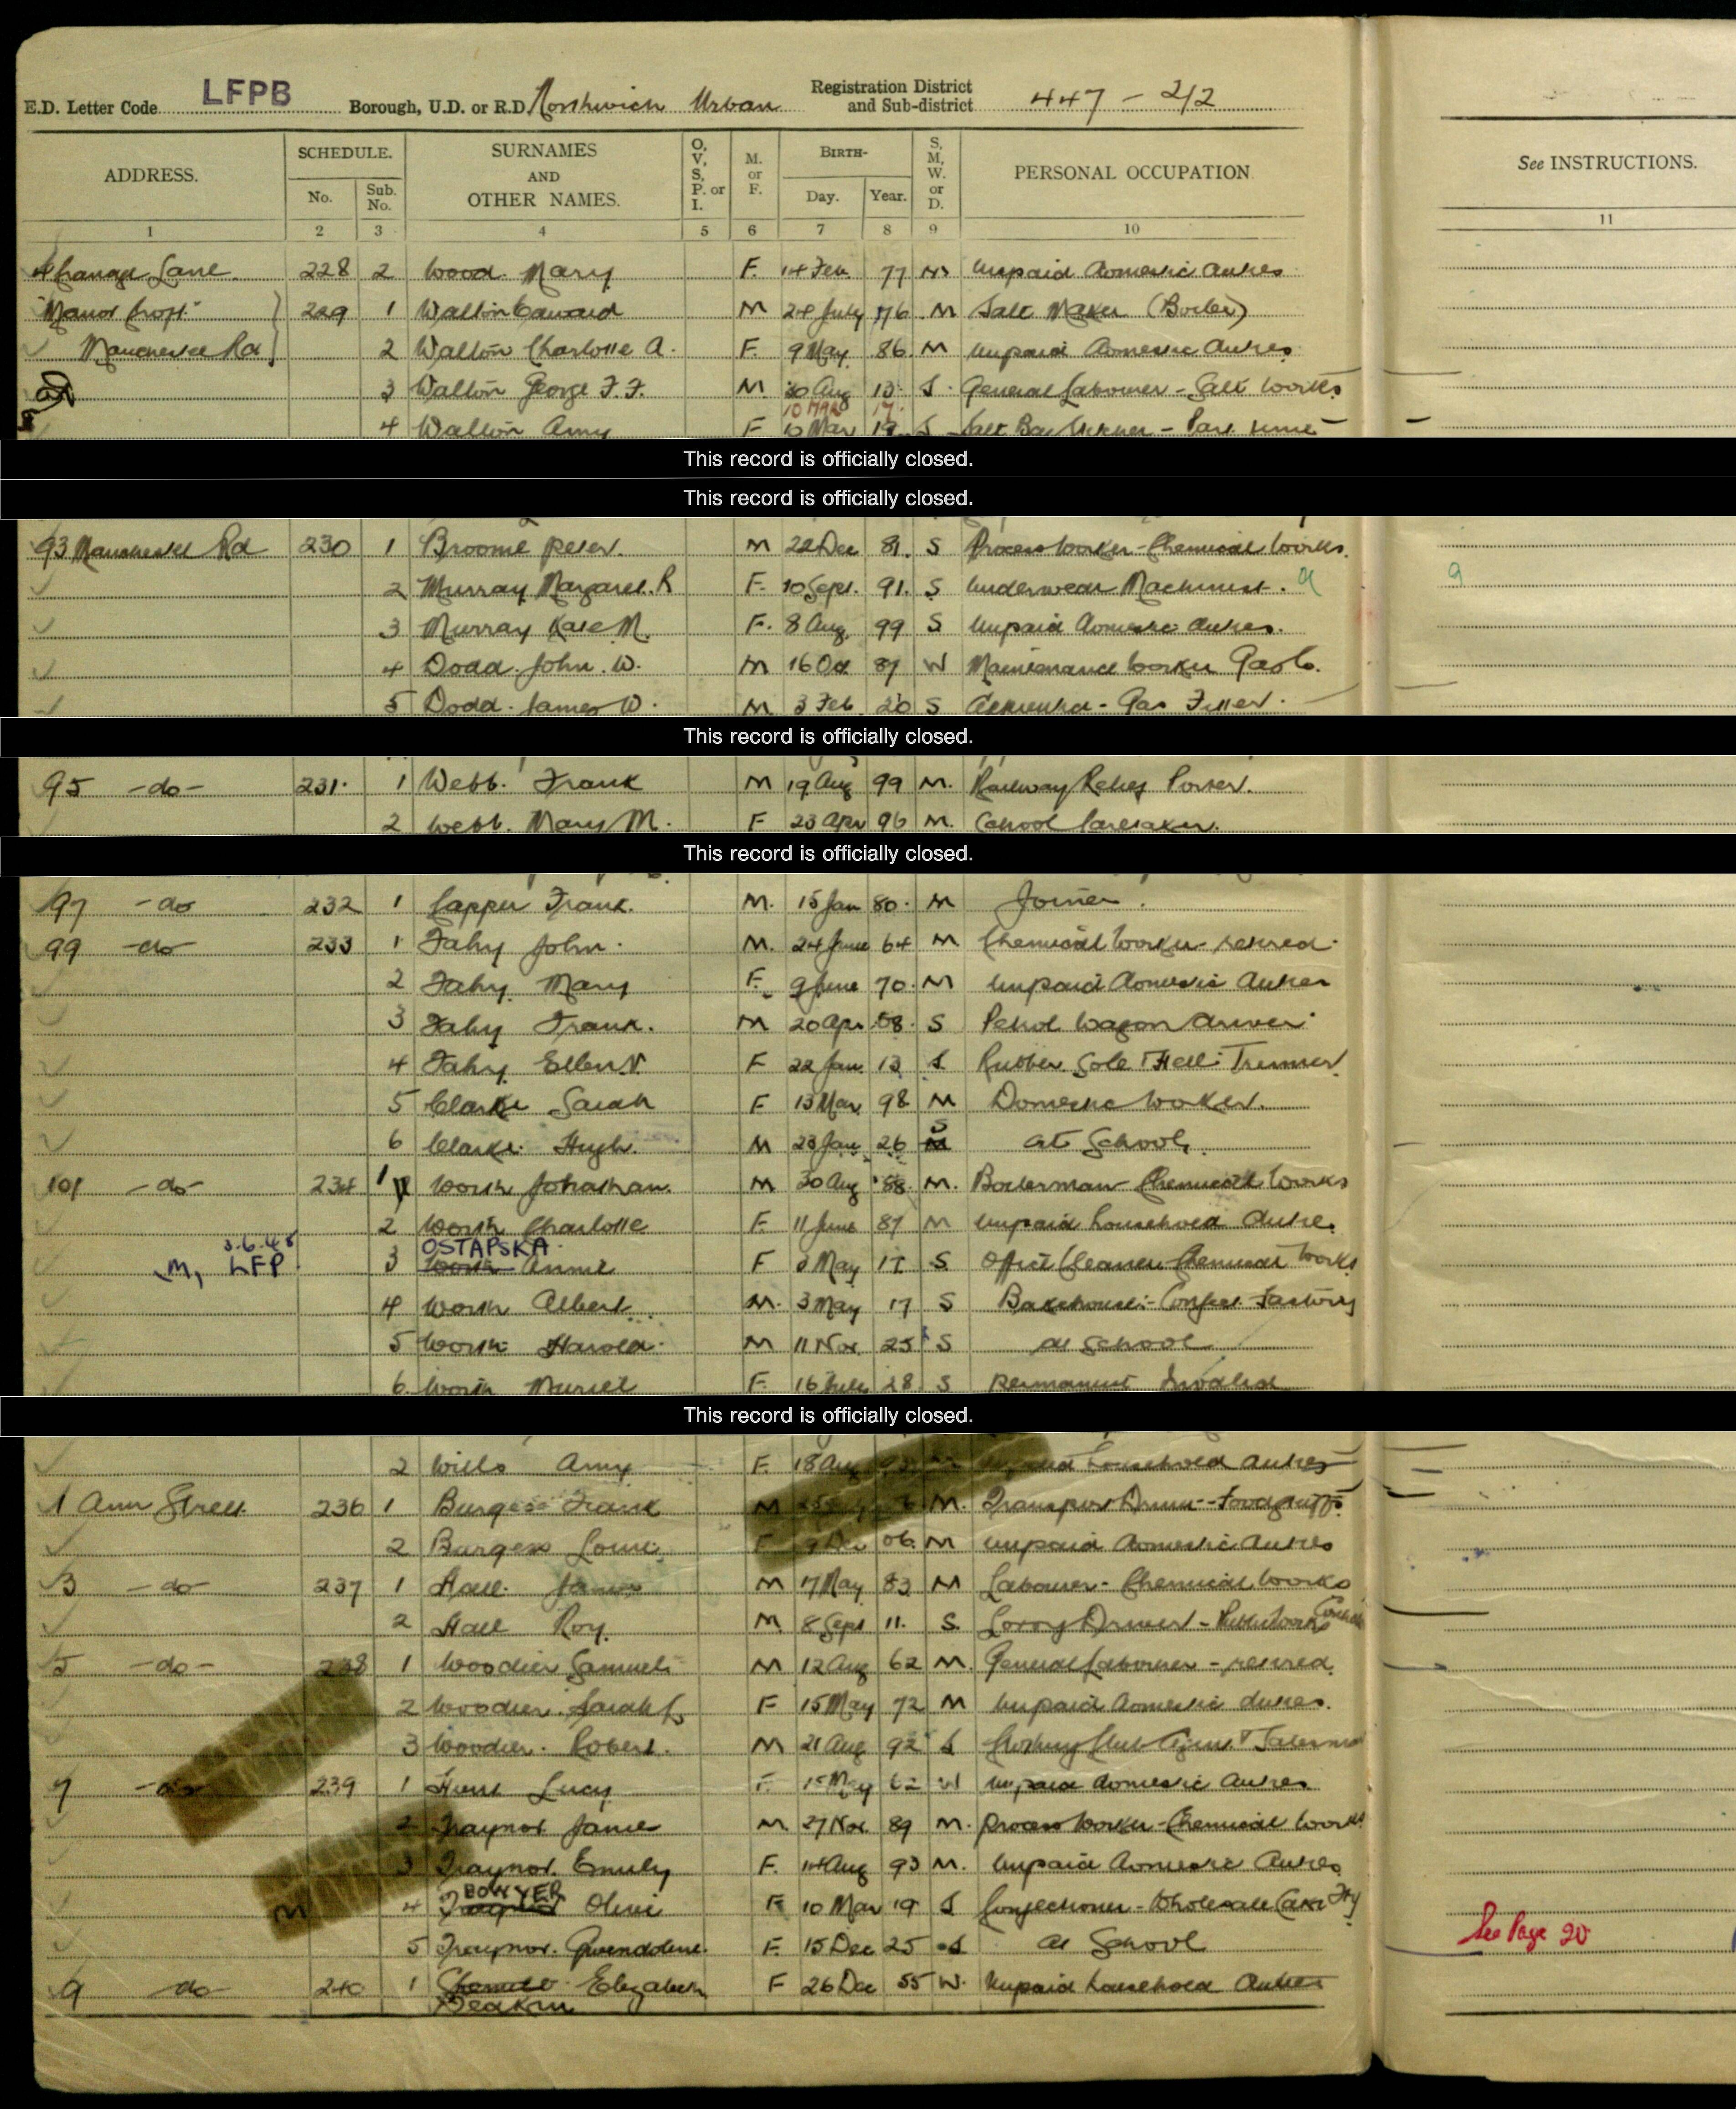 E.D. Letter Code LFPB Borough, U.D. or R.D. Northwich Urban Registration District and Sub-district 447 - 2/2
ADDRESS. SCHEDULE. No. Sub. No. SURNAMES AND OTHER NAMES. O, V, S, P. or I. M. or F. BIRTH- Day. Year. S, M, W. or D. PERSONAL OCCUPATION. See INSTRUCTIONS.
1 2 3 4 5 6 7 8 9 10 11
Lane 228 2 Wood Mary F 14 Feb 77 M Unpaid Domestic Duties
"Manor Croft" 229 1 Walton Edward M 24 July 76 M Salt Maker (Boiler)
Manchester Rd 2 Walton Charlotte A. F. 9 May 86 M Unpaid Domestic Duties
3 Walton George F. F. M. 30 Aug 13 S. General Labourer - Salt Works
10 MAR 17
4 Walton Amy F 10 Mar S Salt - Part time
This record is officially closed.
This record is officially closed.
93 Manchester Rd 230 1 Broome Peter. M 22 Dec 81. S Process Worker - Chemical Works.
2 Murray Margaret. R F. 10 Sept. 91. S Underwear Machinist.
3 Murray Kate M. F. 8 Aug 99 S Unpaid Domestic Duties.
4 Dodd. John. W. M 16 Oct 87 W Maintenance Worker Gas Co.
5 Dodd. James W. M 3 Feb. 20 S Apprentice - Gas Fitter.
This record is officially closed.
95 -do- 231 1 Webb. Frank M 19 Aug 99 M. Railway Relief Porter.
2 Webb. Mary M. F 23 Apr 96 M. School Caretaker.
This record is officially closed.
97 -do 232 1 Capper Frank. M. 15 Jan 80. M Joiner.
99 -do 233 1 Fahy John. M. 24 June 64 M Chemical Worker - retired.
2 Fahy Mary F. 9 June 70 M Unpaid Domestic Duties
3 Fahy Frank. M 20 Apr. 08. S Petrol Wagon Driver
4 Fahy Ellen F 22 Jan 13 S Rubber Sole & Heel Trimmer
5 Clarke Sarah F 13 Mar 98 M Domestic Worker.
6 Clarke Hugh. M 23 Jan 26 S At School,
101 -do- 234 1 Worth Johathan. M 30 Aug 88. M. Boilerman - Chemical Works
2 Worth Charlotte F. 11 June 87 M Unpaid household duties
3.6.48 OSTAPSKA
M, LFP 3 Worth Annie F 3 May 17 S Office Cleaner Chemical Works
4 Worth Albert. M. 3 May 17 S Bakehouse - Confect. Factory
5 Worth Harold. M 11 Nov. 25 S at School
6. Worth Muriel F. 16 28 S Permanent Invalid
This record is officially closed.
2 Wills Amy F. 18 Aug household duties
1 Ann Street 236 1 Burgess Frank M M. Transport Driver - foodstuffs
2 Burgess F 9 Dec 06. M Unpaid Domestic Duties
3 -do- 237 1 Hall James M 17 May 83 M Labourer - Chemical Works
2 Hall Roy. M 8 Sept 11. S. Lorry Driver -
5 -do- 238 1 Woodier Samuel M 12 Aug 62 M. General Labourer - retired.
2 Woodier Sarah F 15 May 72 M Unpaid Domestic duties.
3 Woodier. Robert. M 21 Aug 92 S Club Agent & Salesman
7 -do- 239 1 Hunt Lucy F. 15 May 62 W Unpaid domestic duties
2 Traynor James M. 27 Nov. 89 M. Process Worker - Chemical Works
3 Traynor. Emily F. 14 Aug 93 M. Unpaid Domestic Duties
BOWYER
M 4 Traynor Olive F 10 Mar 19 S Confectioner - Wholesale Cake Fty
5 Traynor. Gwendoline. F. 15 Dec 25 S at School See Page 20
9 do 240 1 Elizabeth F 26 Dec 55 W. Unpaid household duties
Deakin